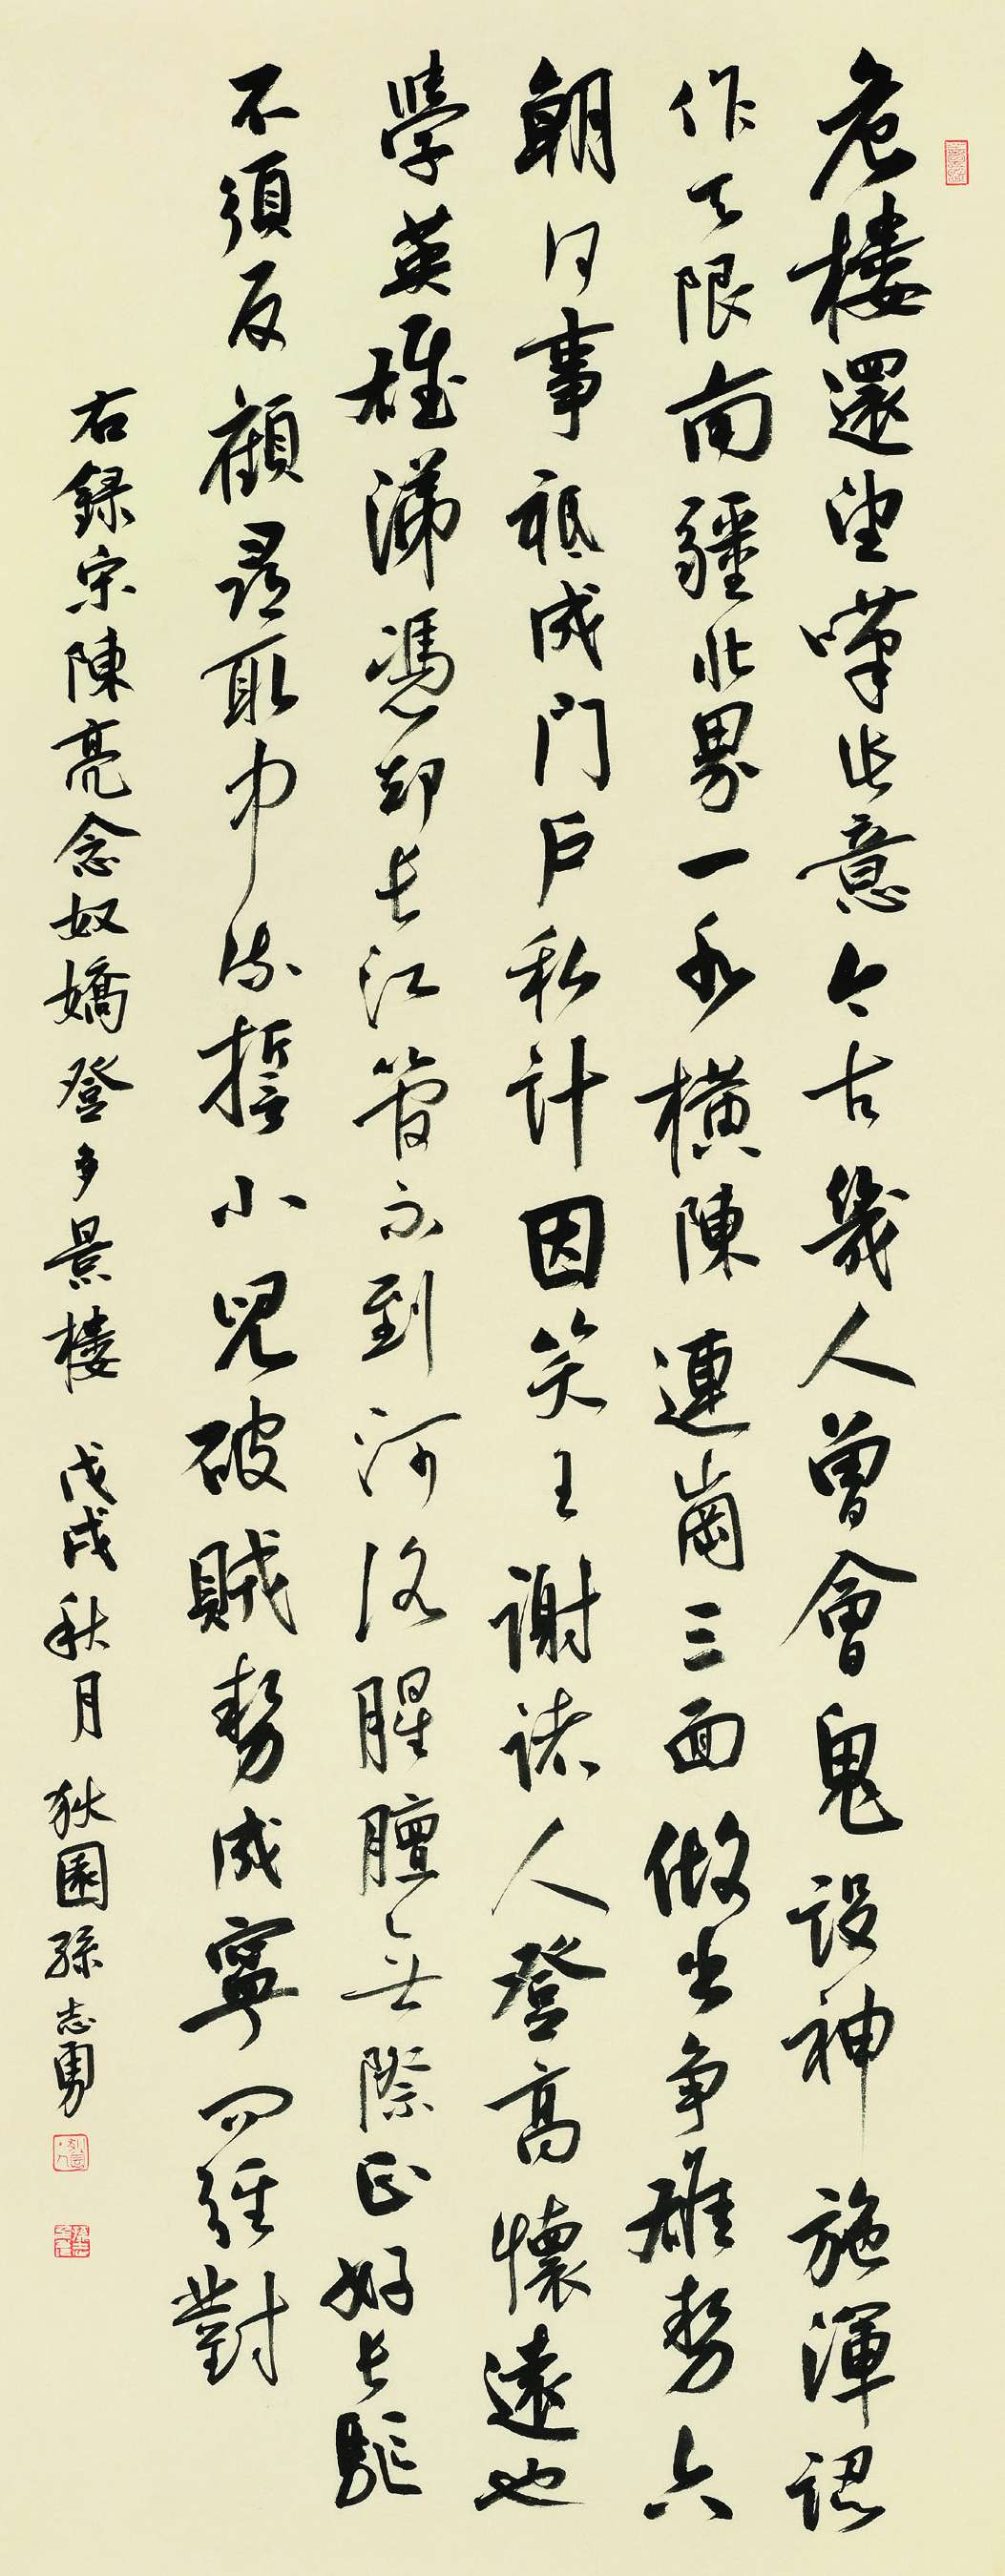 危樓還望嘆此意今古幾人曾會鬼設神施渾認
作天限南疆北界一水橫陳連崗三面做出爭雄勢六
朝何事祗成門戶私計因笑王謝諸人登高懷遠也
學英雄涕憑却長江管不到河洛腥膻無際正好長驅
不須反顧尋取中流誓小兒破賊勢成寧問疆對
右録宋陳亮念奴嬌登多景樓 戊戌秋月 狄園孫志勇